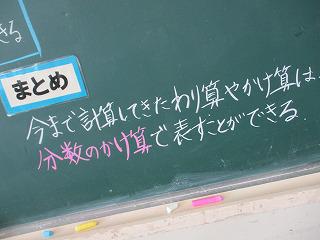 きる
まとめ
今まで計算してきたわり算やかけ算は、
分数のかけ算で表すことができる.